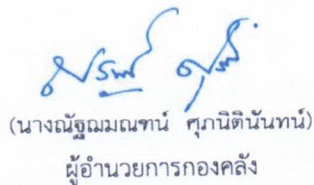 (นางณัฐฌมณฑน์ ศุภนิตินันทน์)
ผู้อำนวยการกองคลัง